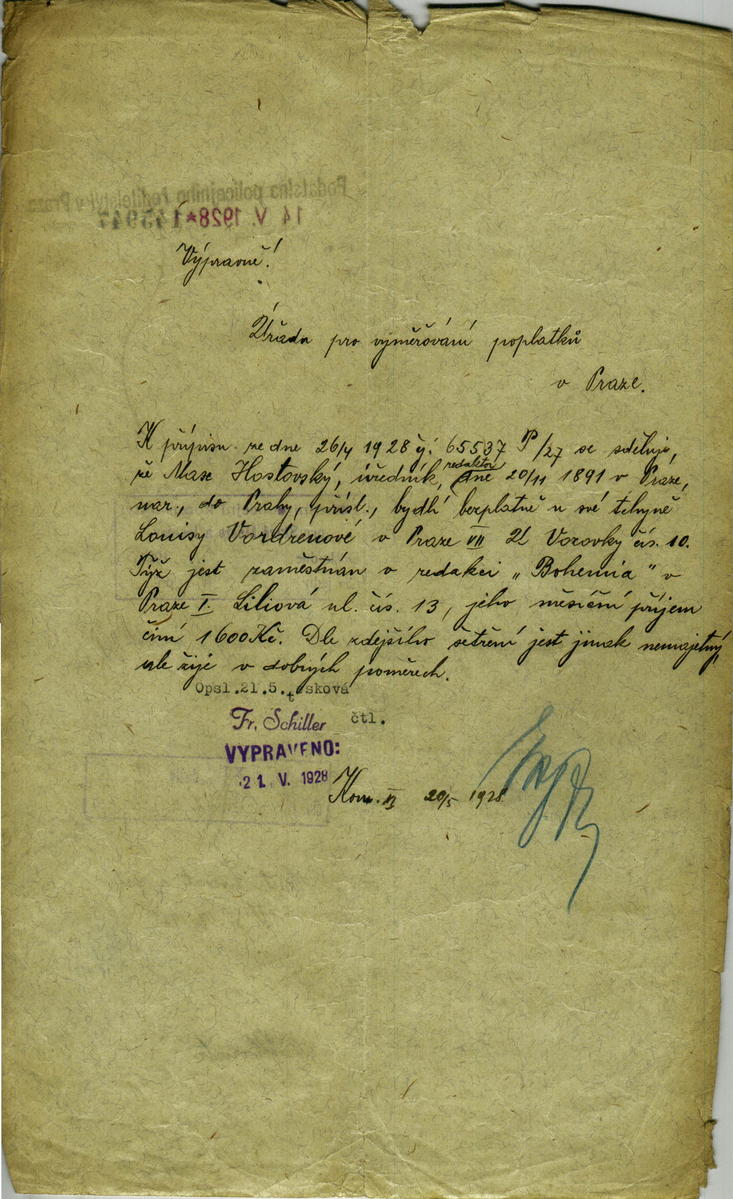 Podatelna policejního ředitelství v Praze
14 V. 1928*
Výpravně!
Úřadu pro vyměřování poplatků
v Praze.
K přípisu ze dne 26/4 1928 čj: 65537 P/27 se sděluje,
redaktor
že Maxe Hostovský, úředník, dne 20/11 1891 v Praze,
nar., do Prahy, přísl., bydlí bezplatně u své tchyně
Louisy v Praze VII Ul Vozovky čís. 10.
Týž jest zaměstnán v redakci „Bohemia" v
Praze I. Liliová ul. čís. 13, jeho měsíční příjem
činí 1600 Kč. Dle zdejšího šetření jest jinak nemajetný
ale žije v dobrých poměrech.
Opsl.21.5. sková
Fr. Schiller čtl.
VYPRAVENO:
21. V. 1928
Kom. 20/5 1928